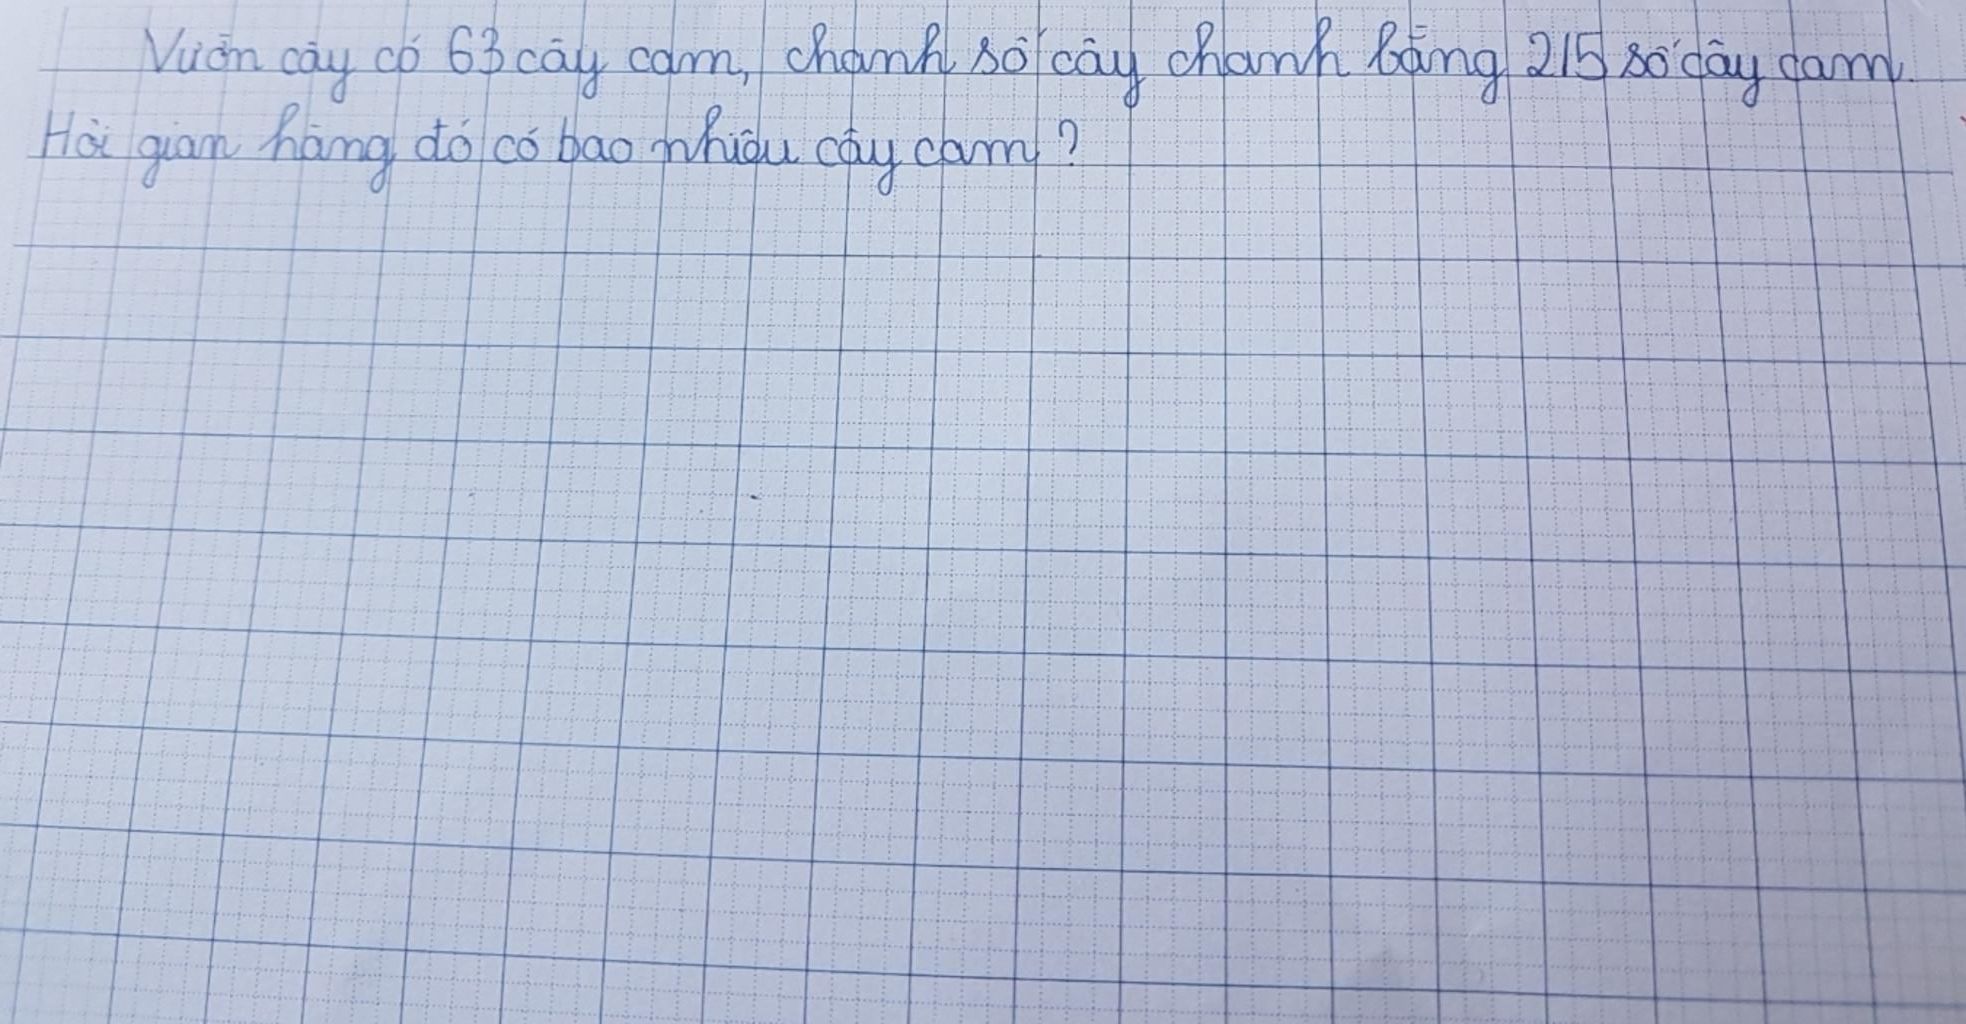 Vườn cây có 63 cây cam, chanh số cây chanh bằng 2/5 số cây cam.
Hỏi gian hàng đó có bao nhiêu cây cam?